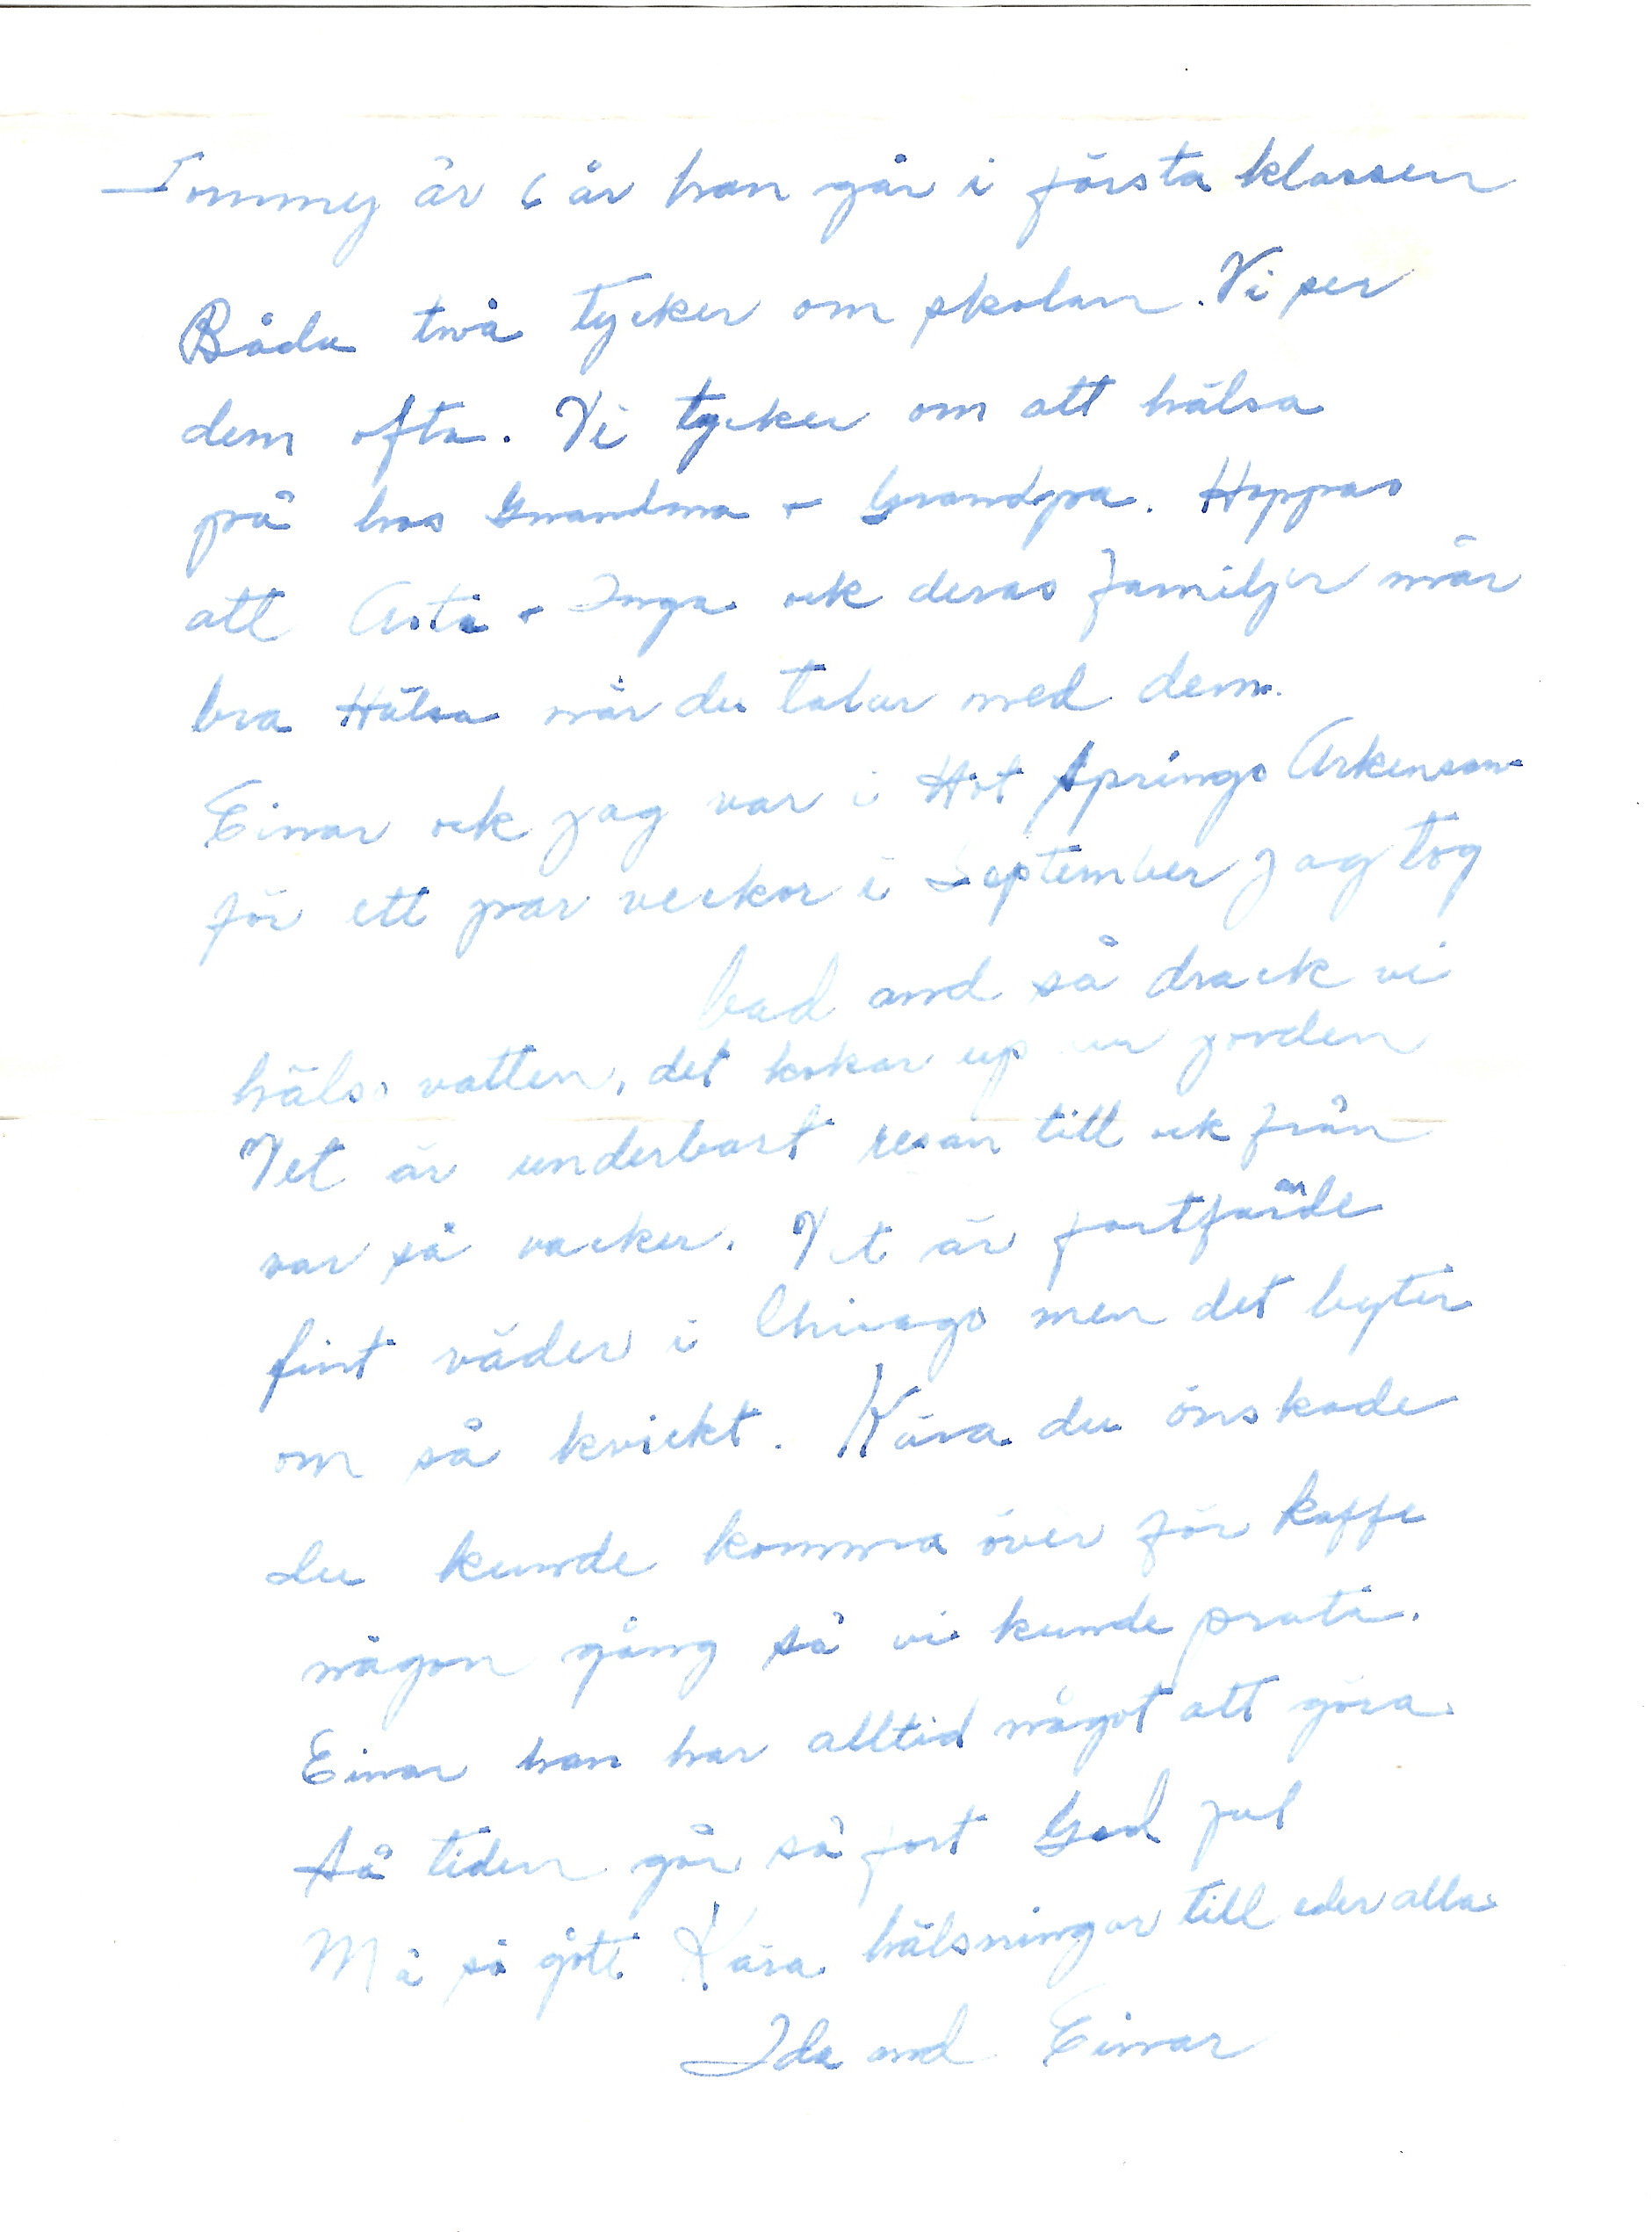 Tommy är 6 år han går i första klassen
Båda två tycker om skolan. Vi ser
dem ofta. Vi tycker om att hälsa
på hos Grandma + Grandpa. Hoppas
att Asta + Inga ock deras familjer mår
bra Hälsa når du talar med dem.
Einar ock jag var i Hot Springs Arkensas
för ett par veckor i September jag tog
bad and så drack vi
hälso vatten, det kokar up ur jorden
Det är underbart resan till ock från
var så vacker. Det är fortfarande
fint väder i Chicago men det byter
om så kvickt. Kära du önskade
du kunde komma över för kaffe
någon gång så vi kunde prata.
Einar han har alltid något att göra
så tiden går så fort God jul
Må så gott Kära hälsningar till eder alla
Ida and Einar